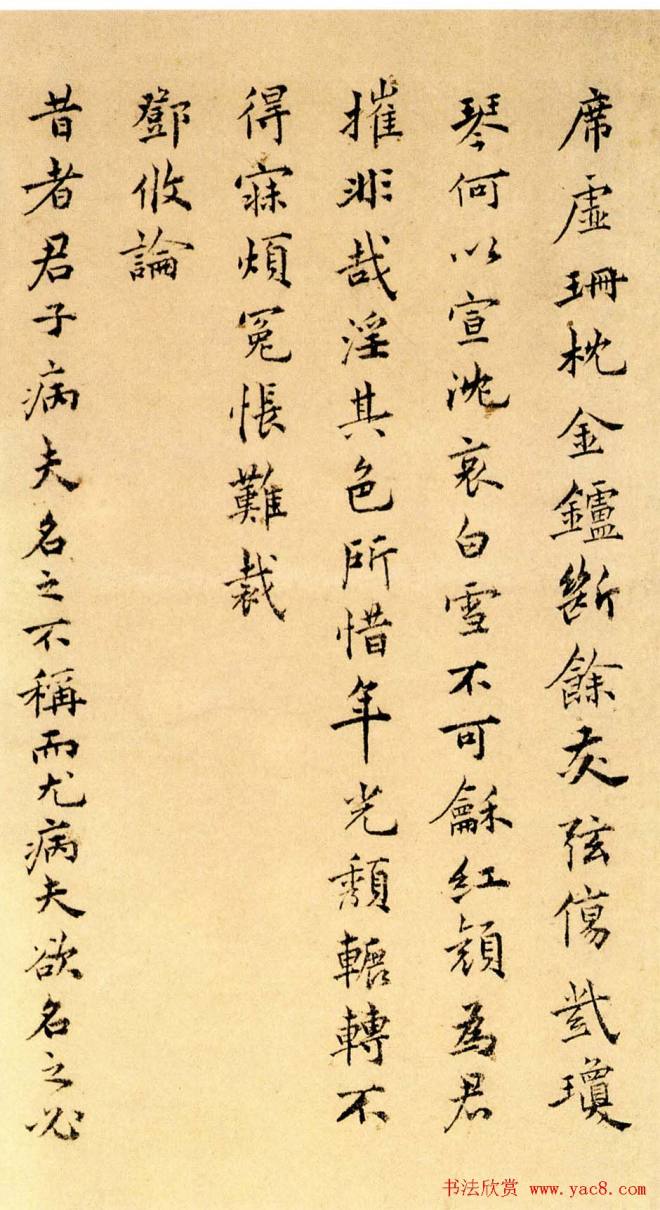 席虛珊枕金鑪斷餘灰弦傷瓊
琴何以宣沈哀白雪不可龢紅顏為君
摧非哉淫其色所惜年光頹輾轉不
得寐煩冤悵難裁
鄧攸論
昔者君子病夫名之不稱而尤病夫欲名之必
书法欣赏 www.yac8.com